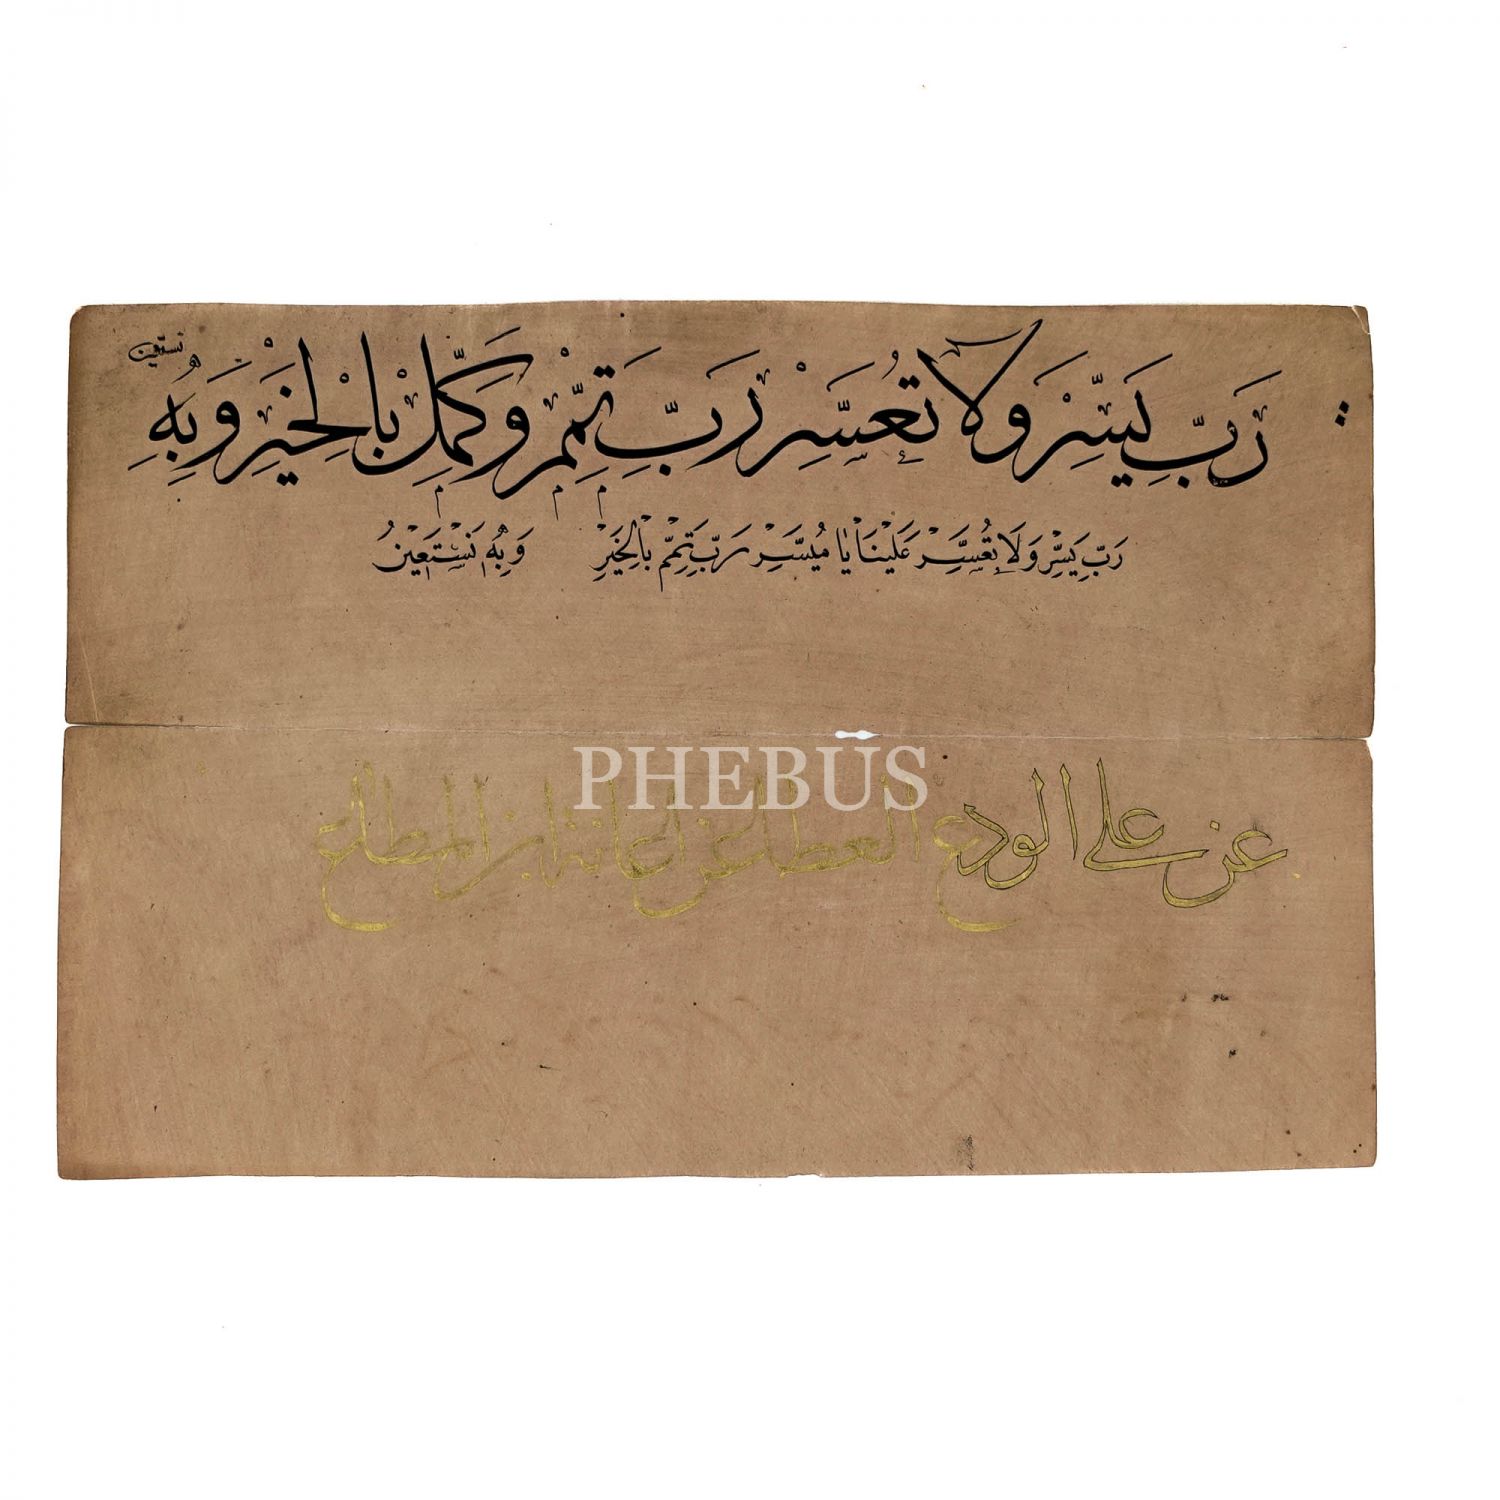 رَبِّ يَسِّرْ وَلَا تُعَسِّرْ رَبِّ تَمِّمْ وَكَمِّلْ بِالْخَيْرِ وَبِهِ نستعين
رَبِّ يَسِّرْ وَلَا تُعَسِّرْ عَلَيْنَا يَا مُيَسِّرْ رَبِّ تَمِّمْ بِالْخَيْرِ وَبِهِ نَسْتَعِينُ
PHEBUS
عن على الودع